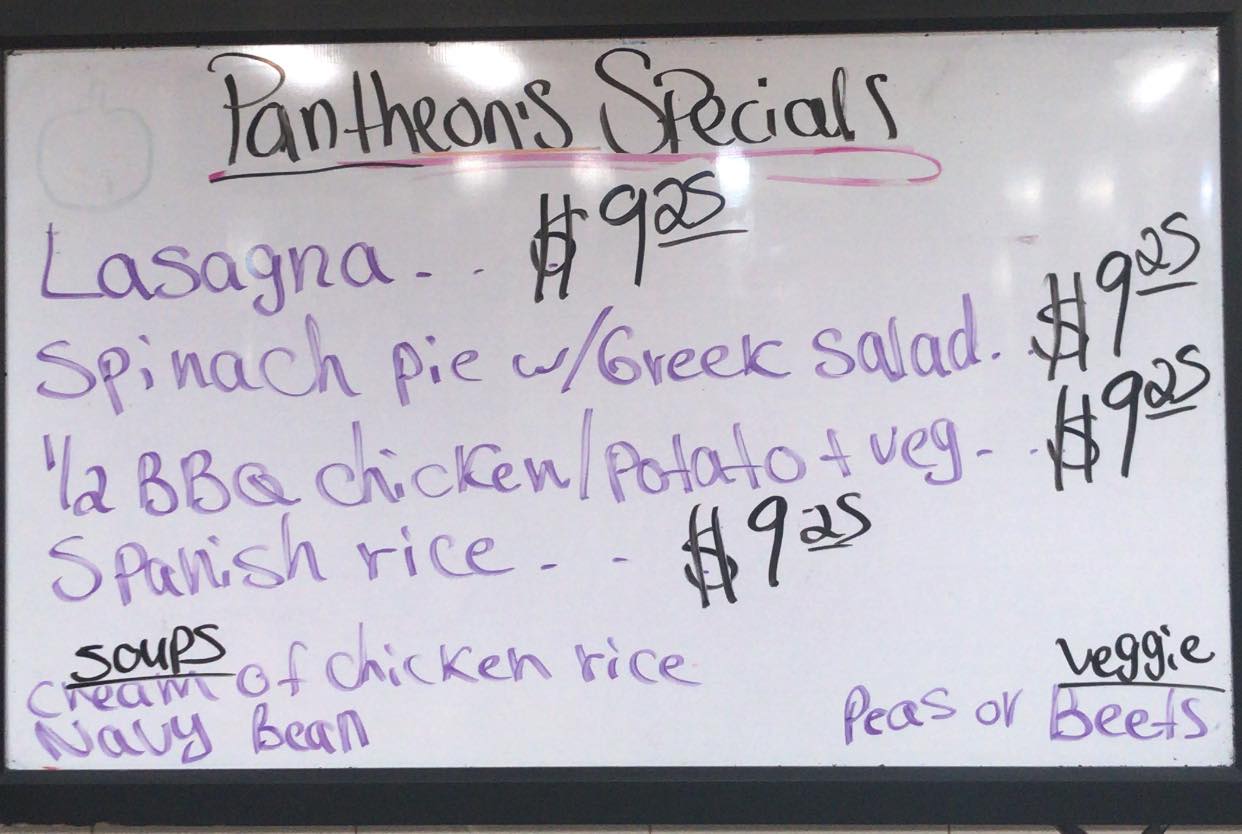 Pantheon's Specials
Lasagna. . . $9.25
Spinach pie w/Greek salad. . $9.25
1/2 BBQ chicken/Potato + veg. . . $9.25
Spanish rice. . . $9.25
soups
cream of chicken rice
Navy Bean
veggie
Peas or Beets